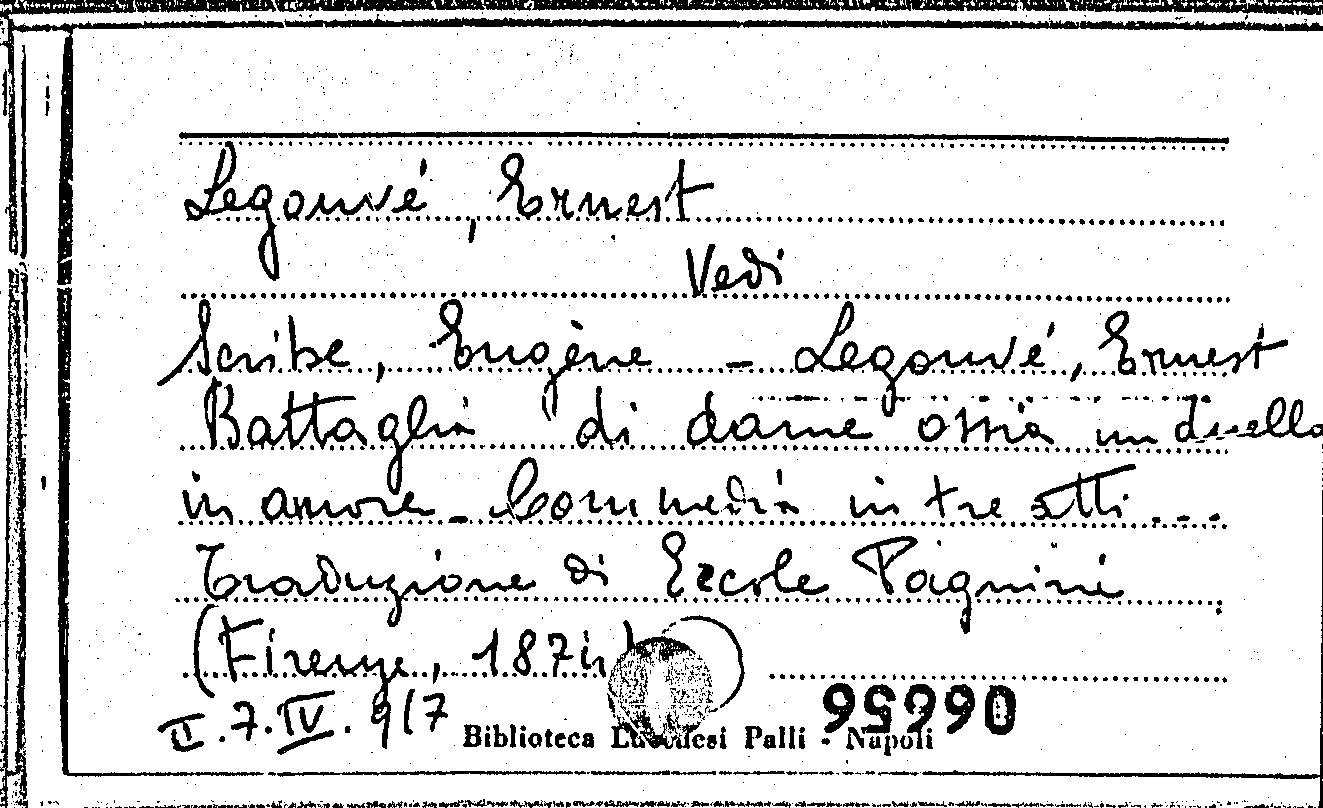 Legouvé, Ernest
Vedi
Scribe, Eugène - Legouvé, Ernest
Battaglia di dame ossia un duello
in amore - Commedia in tre atti...
Traduzione di Ercole Pagnini
(Firenze,
II.7.IV.9/7
Biblioteca Lucchesi Palli - Napoli